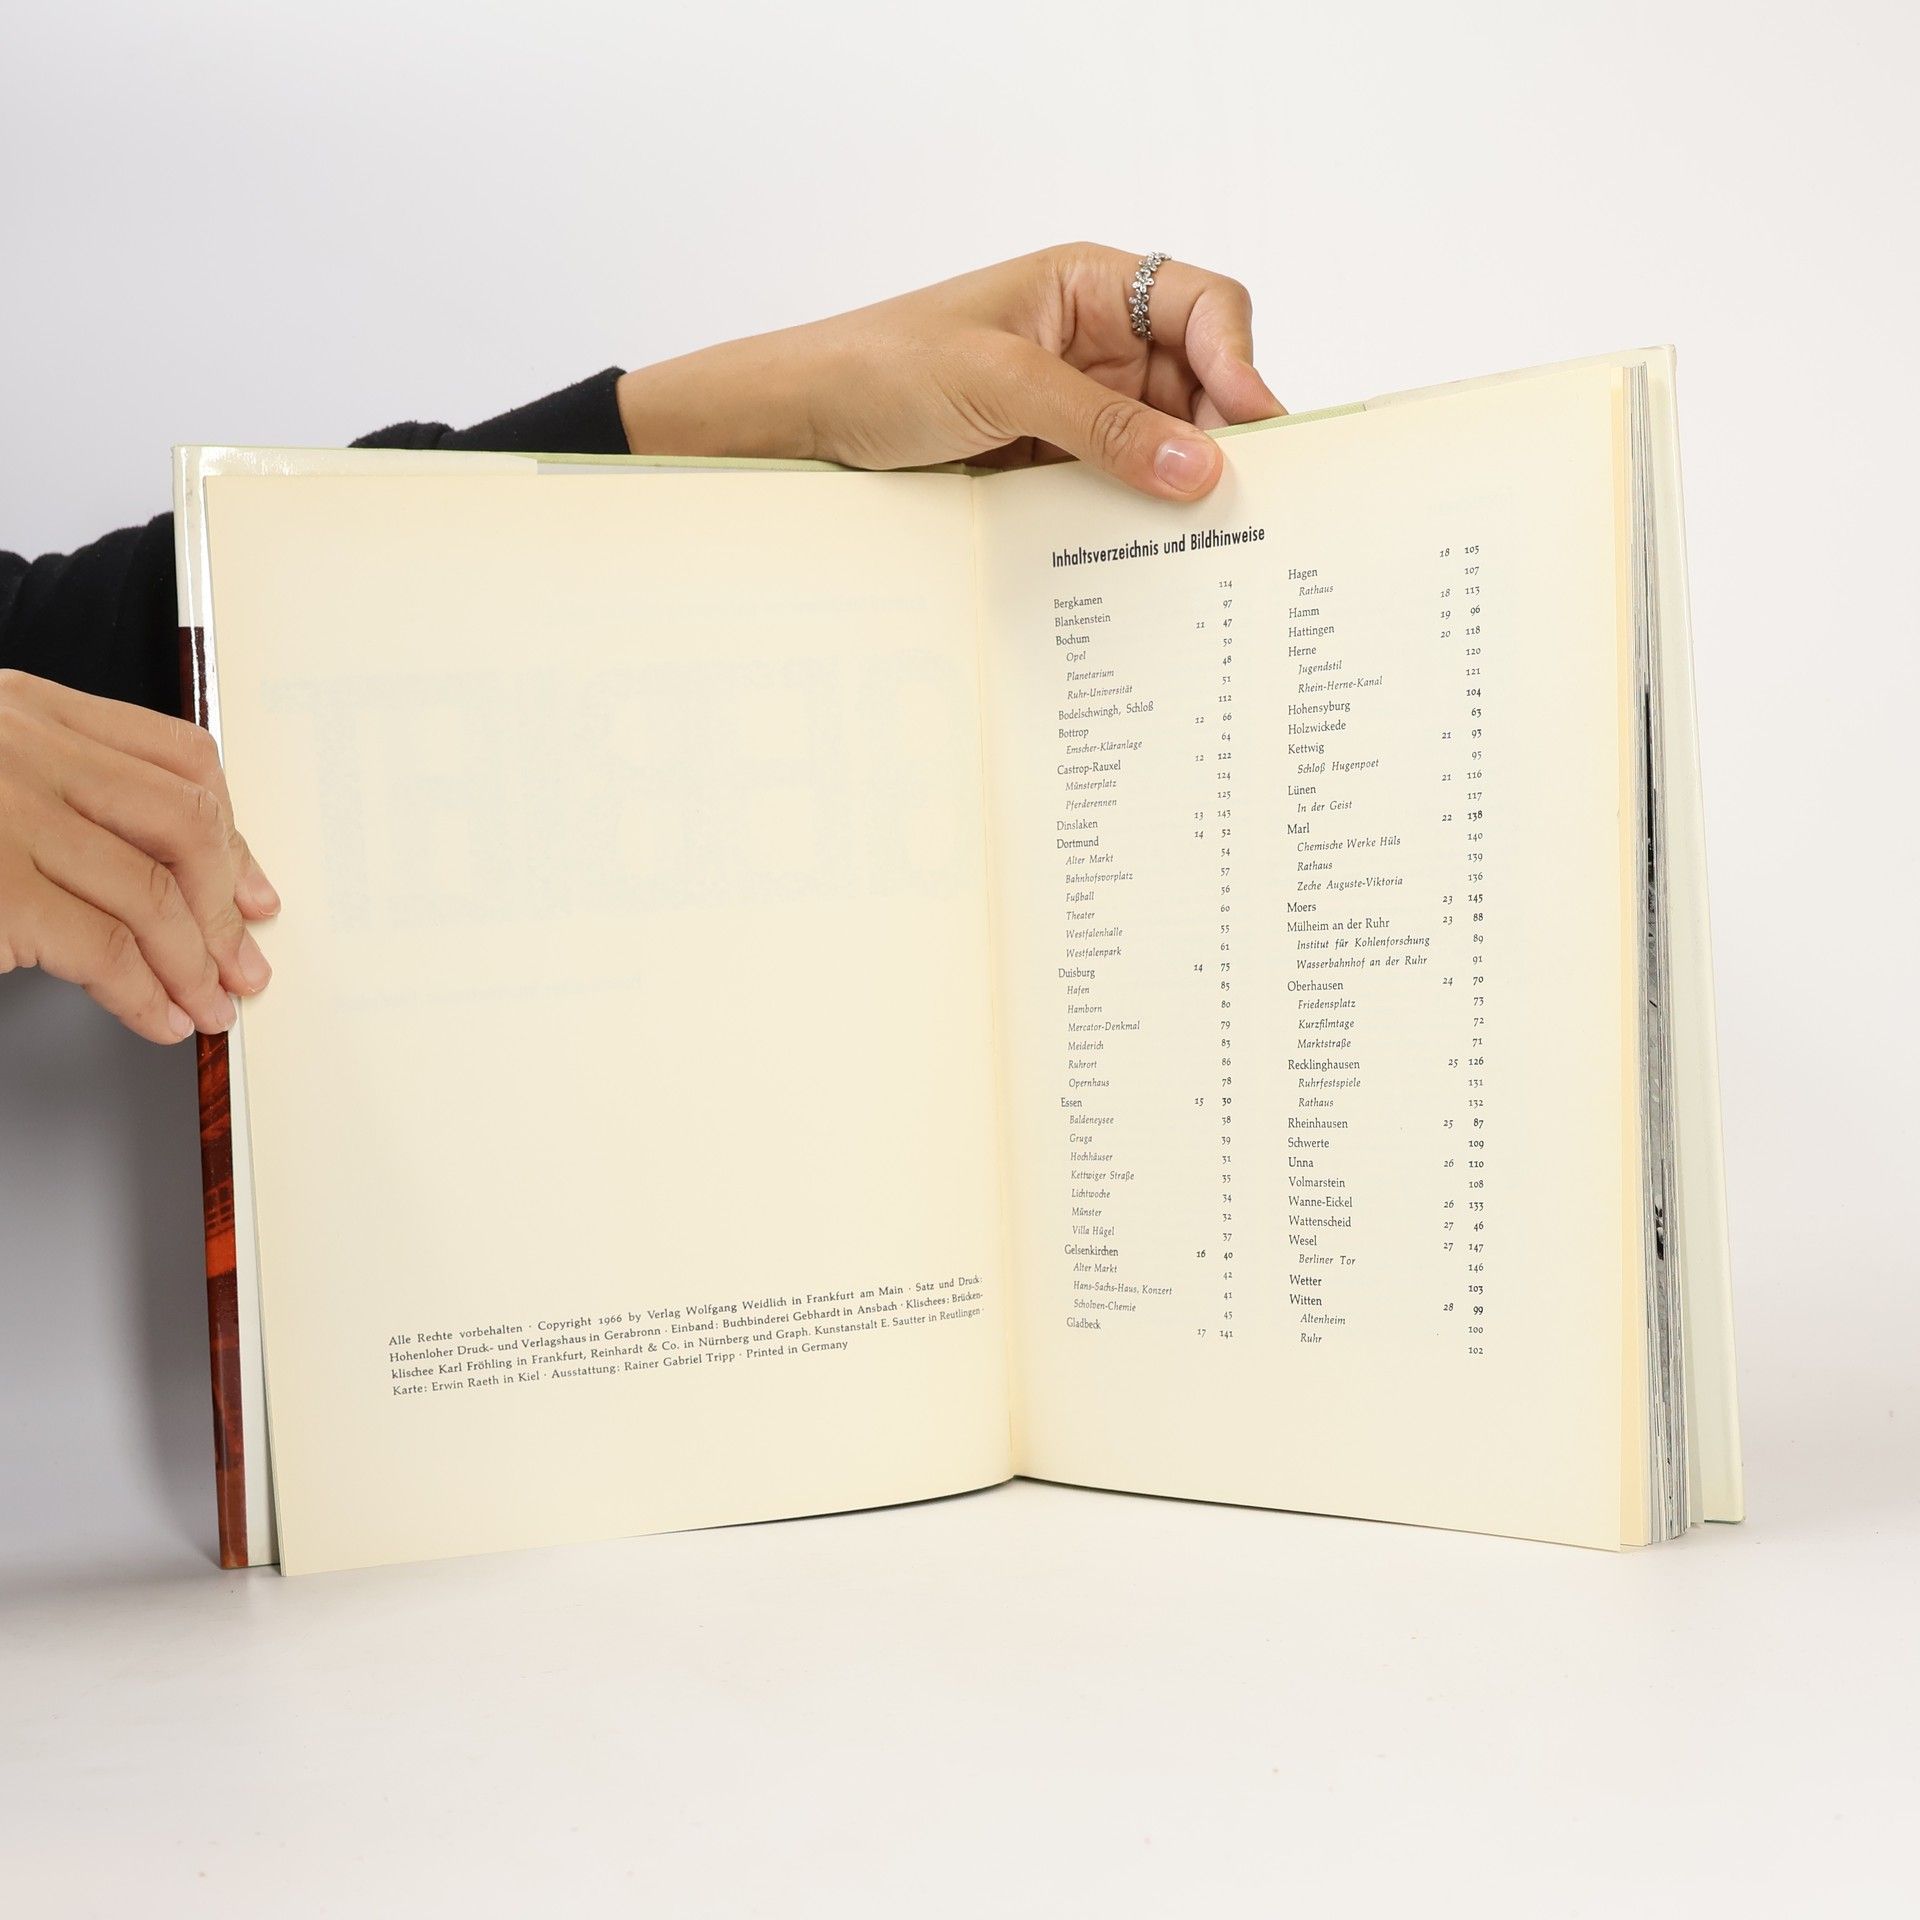 Alle Rechte vorbehalten · Copyright 1966 by Verlag Wolfgang Weidlich in Frankfurt am Main · Satz und Druck:
Hohenloher Druck- und Verlagshaus in Gerabronn · Einband: Buchbinderei Gebhardt in Ansbach · Klischees: Brücken-
klischee Karl Fröhling in Frankfurt, Reinhardt & Co. in Nürnberg und Graph. Kunstanstalt E. Sautter in Reutlingen ·
Karte: Erwin Raeth in Kiel · Ausstattung: Rainer Gabriel Tripp · Printed in Germany
Inhaltsverzeichnis und Bildhinweise
Bergkamen 114
Blankenstein 97
Bochum 11 47
Opel 50
Planetarium 48
Ruhr-Universität 51
Bodelschwingh, Schloß 112
Bottrop 12 66
Emscher-Kläranlage 64
Castrop-Rauxel 12 122
Münsterplatz 124
Pferderennen 125
Dinslaken 13 143
Dortmund 14 52
Alter Markt 54
Bahnhofsvorplatz 57
Fußball 56
Theater 60
Westfalenhalle 55
Westfalenpark 61
Duisburg 14 75
Hafen 85
Hamborn 80
Mercator-Denkmal 79
Meiderich 83
Ruhrort 86
Opernhaus 78
Essen 15 30
Baldeneysee 38
Gruga 39
Hochhäuser 31
Kettwiger Straße 35
Lichtwoche 34
Münster 32
Villa Hügel 37
Gelsenkirchen 16 40
Alter Markt 42
Hans-Sachs-Haus, Konzert 41
Scholven-Chemie 45
Gladbeck 17 141
Hagen 18 105
Rathaus 107
Hamm 18 113
Hattingen 19 96
Herne 20 118
Jugendstil 120
Rhein-Herne-Kanal 121
Hohensyburg 104
Holzwickede 63
Kettwig 21 93
Schloß Hugenpoet 95
Lünen 21 116
In der Geist 117
Marl 22 138
Chemische Werke Hüls 140
Rathaus 139
Zeche Auguste-Viktoria 136
Moers 23 145
Mülheim an der Ruhr 23 88
Institut für Kohlenforschung 89
Wasserbahnhof an der Ruhr 91
Oberhausen 24 70
Friedensplatz 73
Kurzfilmtage 72
Marktstraße 71
Recklinghausen 25 126
Ruhrfestspiele 131
Rathaus 132
Rheinhausen 25 87
Schwerte 109
Unna 26 110
Volmarstein 108
Wanne-Eickel 26 133
Wattenscheid 27 46
Wesel 27 147
Berliner Tor 146
Wetter 103
Witten 28 99
Altenheim 100
Ruhr 102